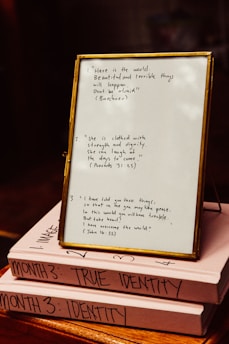 1 "Here is the world
Beautiful and terrible things
will happen.
Don't be afraid"
(Buechner)
2 "She is clothed with
strength and dignity
She can laugh at
the days to come"
(Proverbs 31:25)
3 "I have told you these things,
so that in me you may have peace.
In this world you will have trouble.
But take heart!
I have overcome the world"
(John 16:33)
1. IMAGE
2
3
4
MONTH 3: TRUE IDENTITY
MONTH 3: IDENTITY